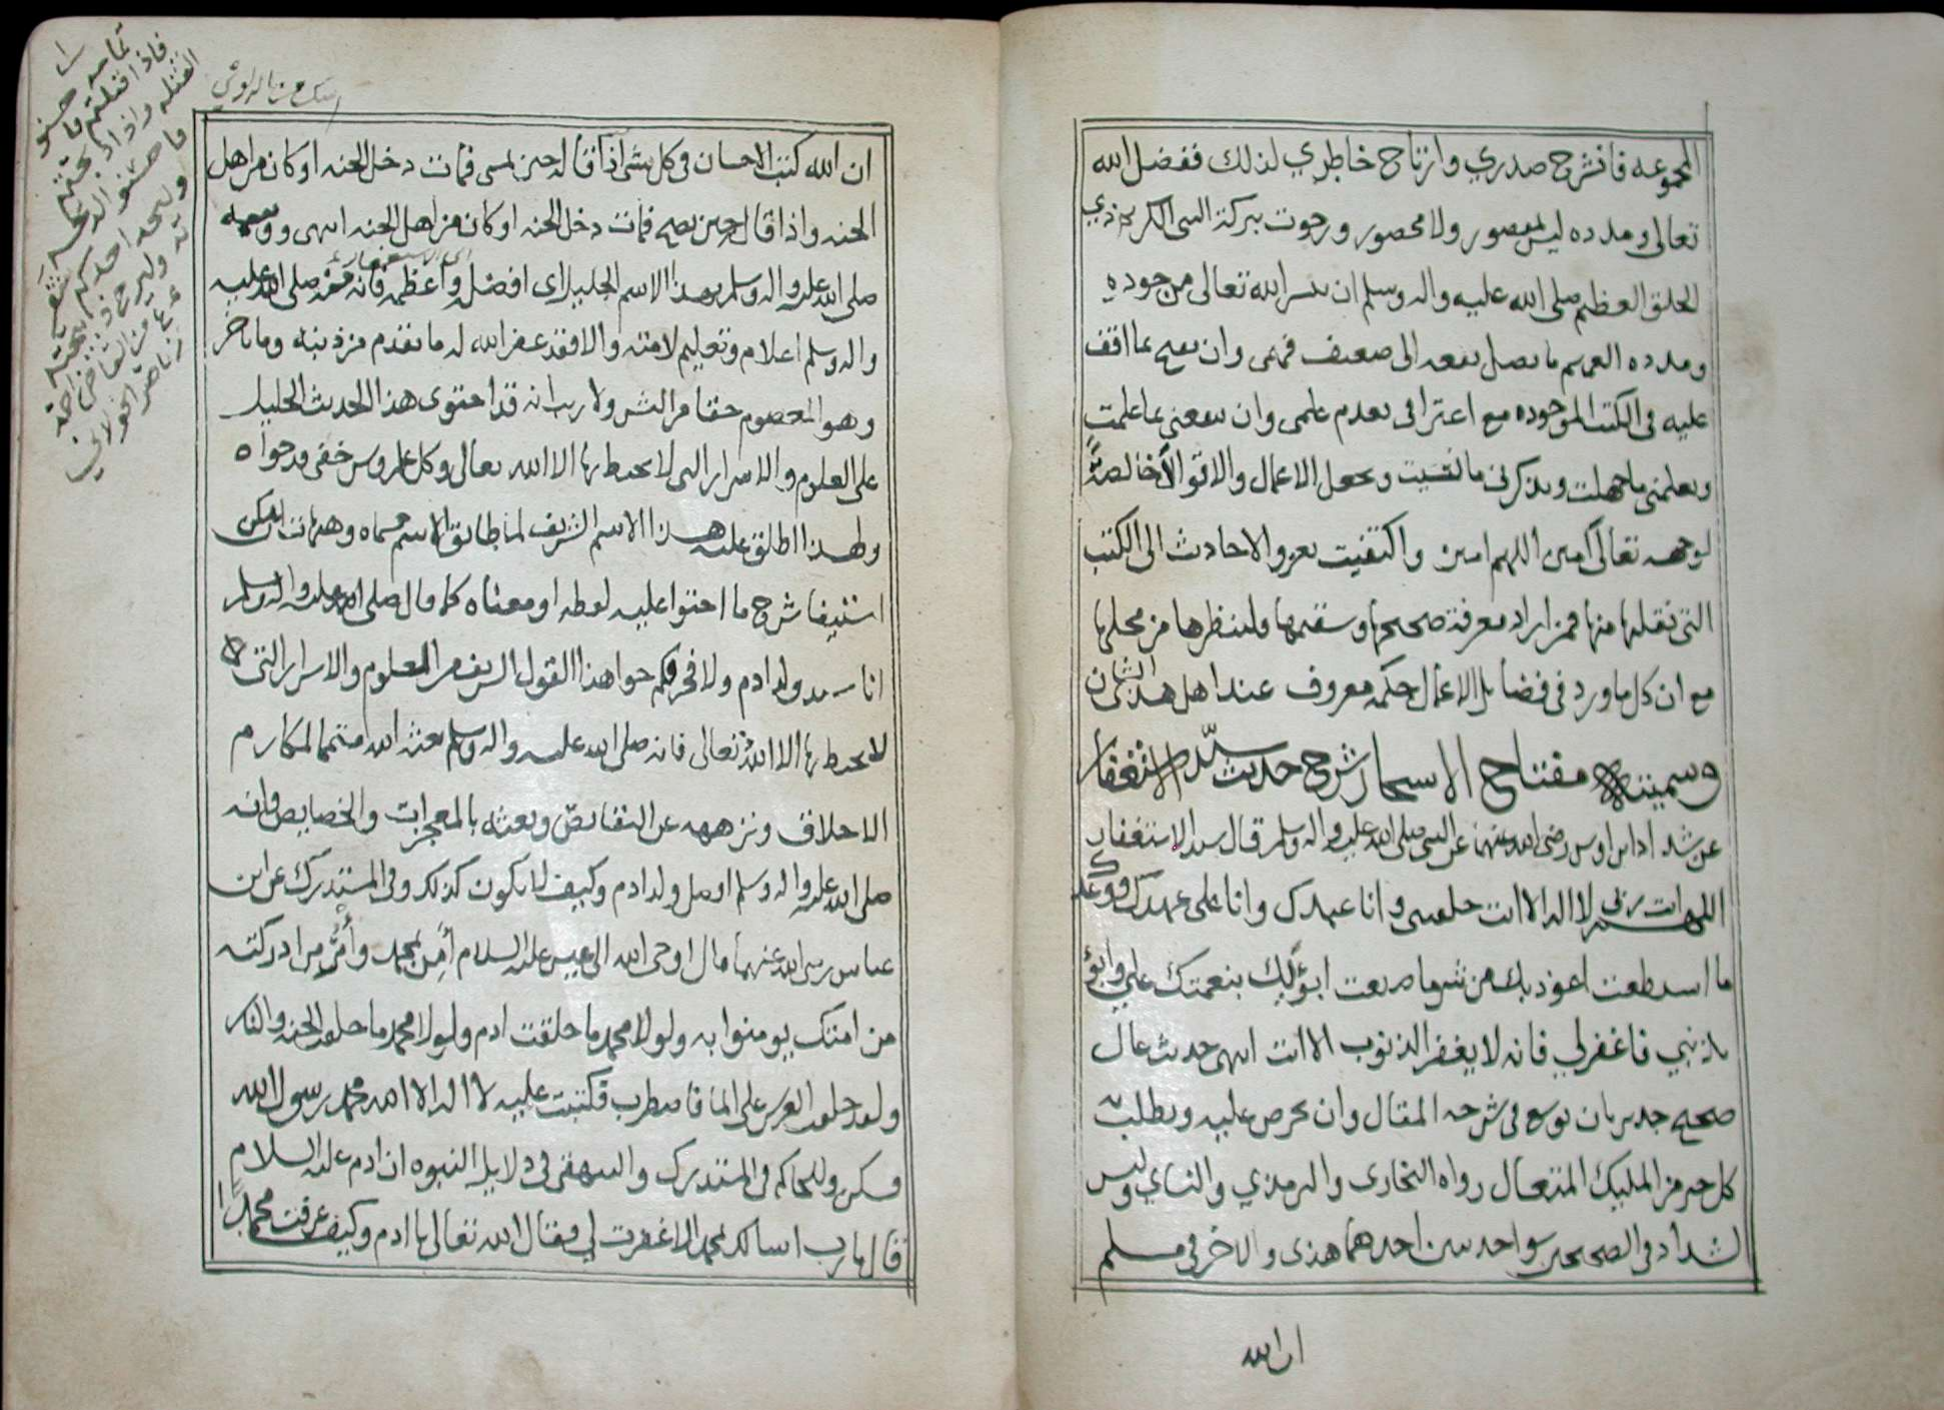 المجموعه فانشرح صدري وارتاح خاطري لذلك ففضل الله
تعالى ومدده ليس بمقصور ولا محصور ورجوت ببركة النبى الكريم ذي
الخلق العظيم صلى الله عليه واله وسلم ان ييسر الله تعالى من جوده
ومدده العميم ما يصل نفعه الى ضعيف فهمى وان يفتح بما اقف
عليه فى الكتب الموجوده مع اعترافى بعدم علمى وان ينفعنى بما علمت
ويعلمنى ما جهلت ويذكرنى ما نسيت ويجعل الاعمال والاقوال خالصة
لوجهه تعالى آمين اللهم امين واكتفيت بعزو الاحاديث الى الكتب
التى نقلتها منها فمن اراد معرفة صحيحها وسقيمها فلينظرها من محلها
مع ان كل ما ورد فى فضايل الاعمال حكمه معروف عند اهل هذا الشان
وسميته مفتاح الاسحار شرح حديث سيّد الاستغفار
عن شداد ابن اوس رضى الله عنهما عن النبى صلى الله عليه واله وسلم قال سيد الاستغفار
اللهم انت ربى لا اله الا انت خلقتنى وانا عبدك وانا على عهدك ووعدك
ما استطعت اعوذ بك من شر ما صنعت ابؤ لك بنعمتك علي وابؤ
بذنبي فاغفر لي فانه لا يغفر الذنوب الا انت انتهى حديث عال
صحيح جدير بان يوسع فى شرحه المقال وان يحرص عليه ويطلب به
كل خير من المليك المتعال رواه البخارى والترمذي والنساي وليس
لشداد فى الصحيحين سوا حديثين احدهما هذى والاخر فى مسلم
ان الله
ان الله كتب الاحسان فى كل شى اذا قاله حين يمسى فمات دخل الجنه او كان من اهل
الجنه واذا قال حين يصبح فمات دخل الجنه او كان من اهل الجنه انتهى ووسمه
اى الاستغفار
صلى الله عليه واله وسلم بهذا الاسم الجليل اى افضل واعظمه فانه منه صلى الله عليه
واله وسلم اعلام وتعليم لامته والا فقد غفر الله له ما تقدم من ذنبه وما تاخر
وهو المعصوم حقا من الشر ولا ريب انه قد احتوى هذا الحديث الجليل
على العلوم والاسرار التى لا يحيط بها الا الله تعالى وكل علم وسر خفى قد حواه
ولهذا اطلق عليه هذا الاسم الشريف لما طابق الاسم مسماه وهيهات يمكن
استيفا شرح ما احتوا عليه لفظه او معناه كما قال صلى الله عليه واله وسلم
انا سيد ولد ادم ولا فخر فكم حوا هذا القول الشريف من العلوم والاسرار التى
لا يحيط بها الا الله تعالى فانه صلى الله عليه واله وسلم بعثه الله متمما لمكارم
الاخلاق ونزهه عن النقايص وبعثه بالمعجزات والخصايص وانه
صلى الله عليه واله وسلم افضل ولد ادم وكيف لا يكون كذلك وفى المستدرك عن ابن
عباس رضى الله عنهما قال اوحى الله الى عيسى عليه السلام آمن بمحمد وأمر من ادركته
من امتك يومنوا به ولولا محمد ما خلقت ادم ولولا محمد ما خلقت الجنه والنار
ولقد خلقت العرش على الما فاضطرب فكتبت عليه لا اله الا الله محمد رسول الله
فسكن وللحاكم فى المستدرك والبيهقى فى دلايل النبوه ان ادم عليه السلام
قال يا رب اسالك بمحمد الا غفرت لي فقال الله تعالى يا ادم وكيف عرفت محمدا
تمامه
فاذا قتلتم فاحسنو
القتله واذا ذبحتم
فاحسنو الذبحه
وليحد احدكم شفرته
وليرح ذبيحته